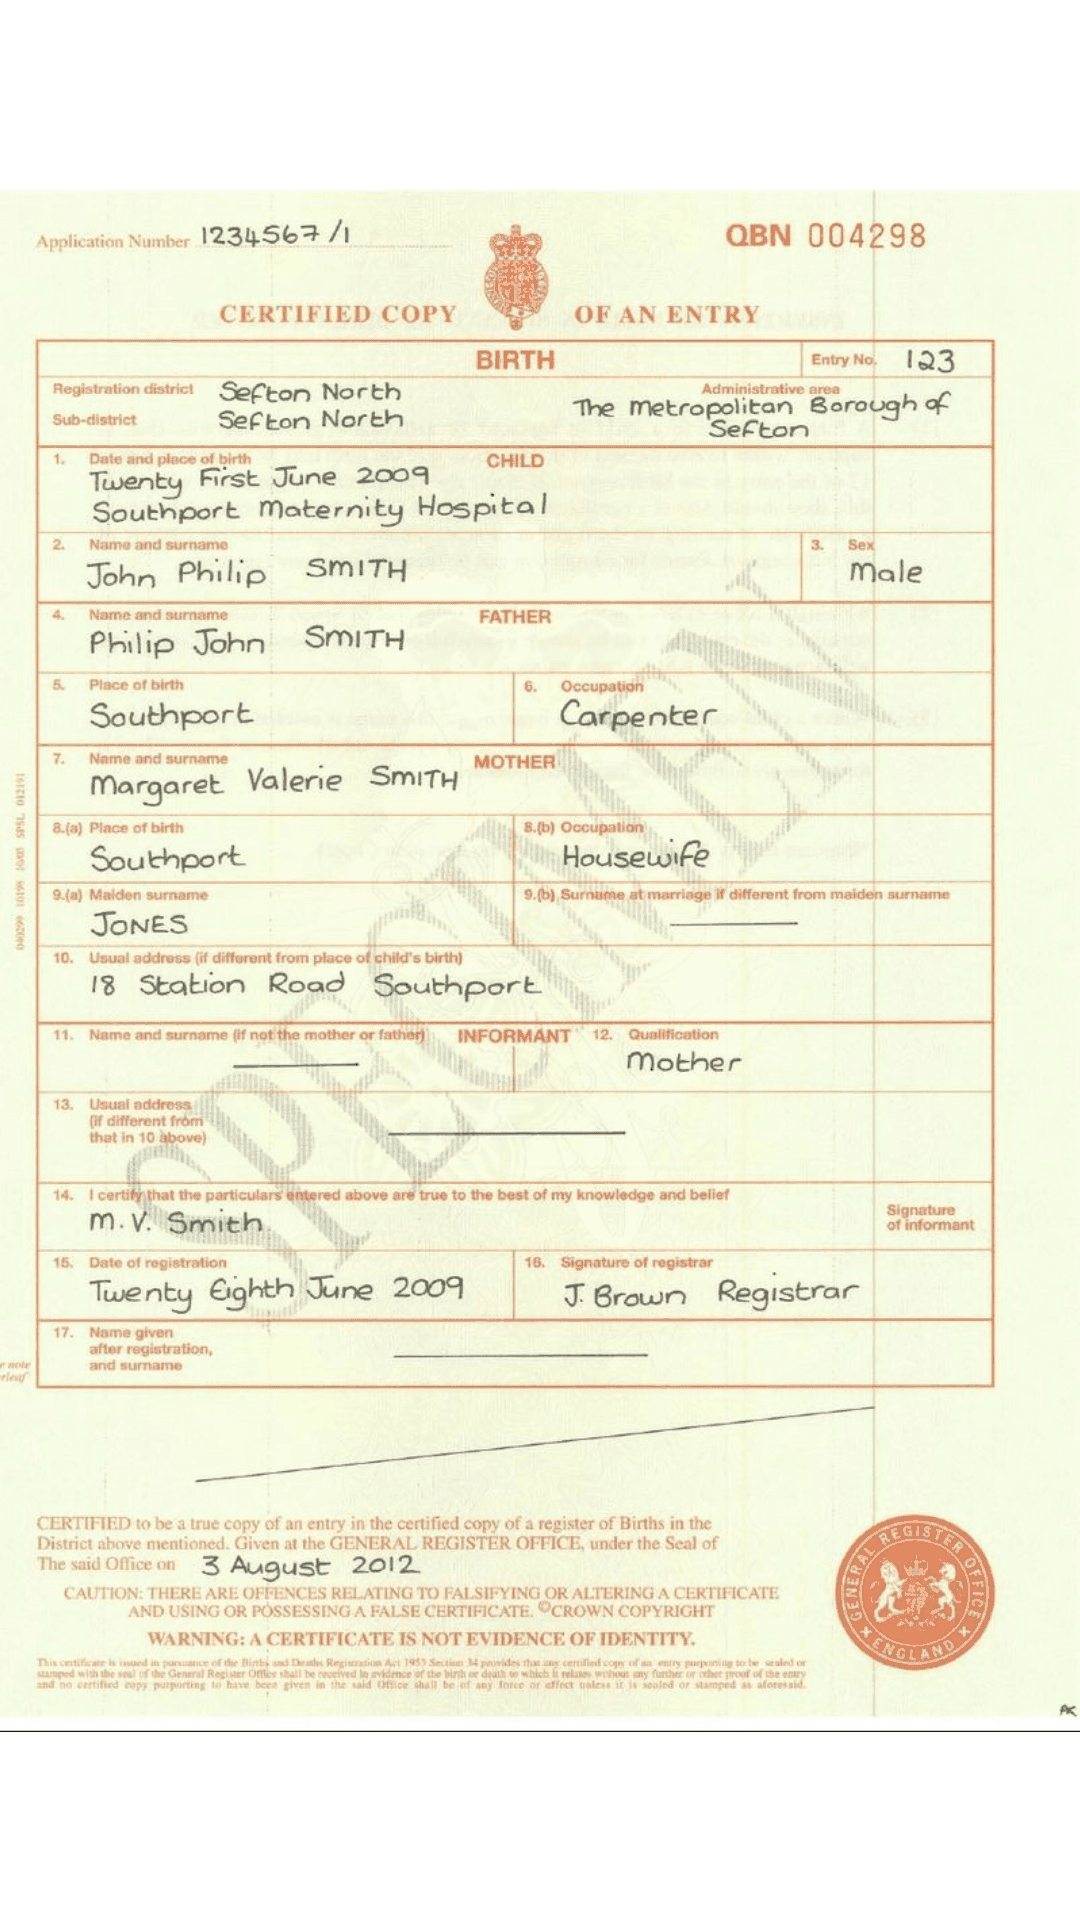 Application Number 1234567/1
QBN 004298
CERTIFIED COPY OF AN ENTRY
BIRTH
Entry No. 123
Registration district Sefton North
Administrative area
Sub-district Sefton North
The Metropolitan Borough of
Sefton
1. Date and place of birth CHILD
Twenty First June 2009
Southport Maternity Hospital
2. Name and surname
3. Sex
John Philip SMITH
Male
4. Name and surname FATHER
Philip John SMITH
5. Place of birth
6. Occupation
Southport
Carpenter
7. Name and surname MOTHER
Margaret Valerie SMITH
8.(a) Place of birth
8.(b) Occupation
Southport
Housewife
9.(a) Maiden surname
9.(b) Surname at marriage if different from maiden surname
JONES
10. Usual address (if different from place of child's birth)
18 Station Road Southport
11. Name and surname (if not the mother or father) INFORMANT
12. Qualification
Mother
13. Usual address
(if different from
that in 10 above)
14. I certify that the particulars entered above are true to the best of my knowledge and belief
M.V. Smith
Signature
of informant
15. Date of registration
16. Signature of registrar
Twenty Eighth June 2009
J. Brown Registrar
17. Name given
after registration,
and surname
e note
erleaf
SPECIMEN
040299 10198 10/03 SPSL 012191
CERTIFIED to be a true copy of an entry in the certified copy of a register of Births in the
District above mentioned. Given at the GENERAL REGISTER OFFICE, under the Seal of
The said Office on 3 August 2012
CAUTION: THERE ARE OFFENCES RELATING TO FALSIFYING OR ALTERING A CERTIFICATE
AND USING OR POSSESSING A FALSE CERTIFICATE. ©CROWN COPYRIGHT
WARNING: A CERTIFICATE IS NOT EVIDENCE OF IDENTITY.
This certificate is issued in pursuance of the Births and Deaths Registration Act 1953 Section 34 provides that any certified copy of an entry purporting to be sealed or
stamped with the seal of the General Register Office shall be received in evidence of the birth or death to which it relates without any further or other proof of the entry
and no certified copy purporting to have been given in the said Office shall be of any force or effect unless it is sealed or stamped as aforesaid.
GENERAL REGISTER OFFICE
ENGLAND